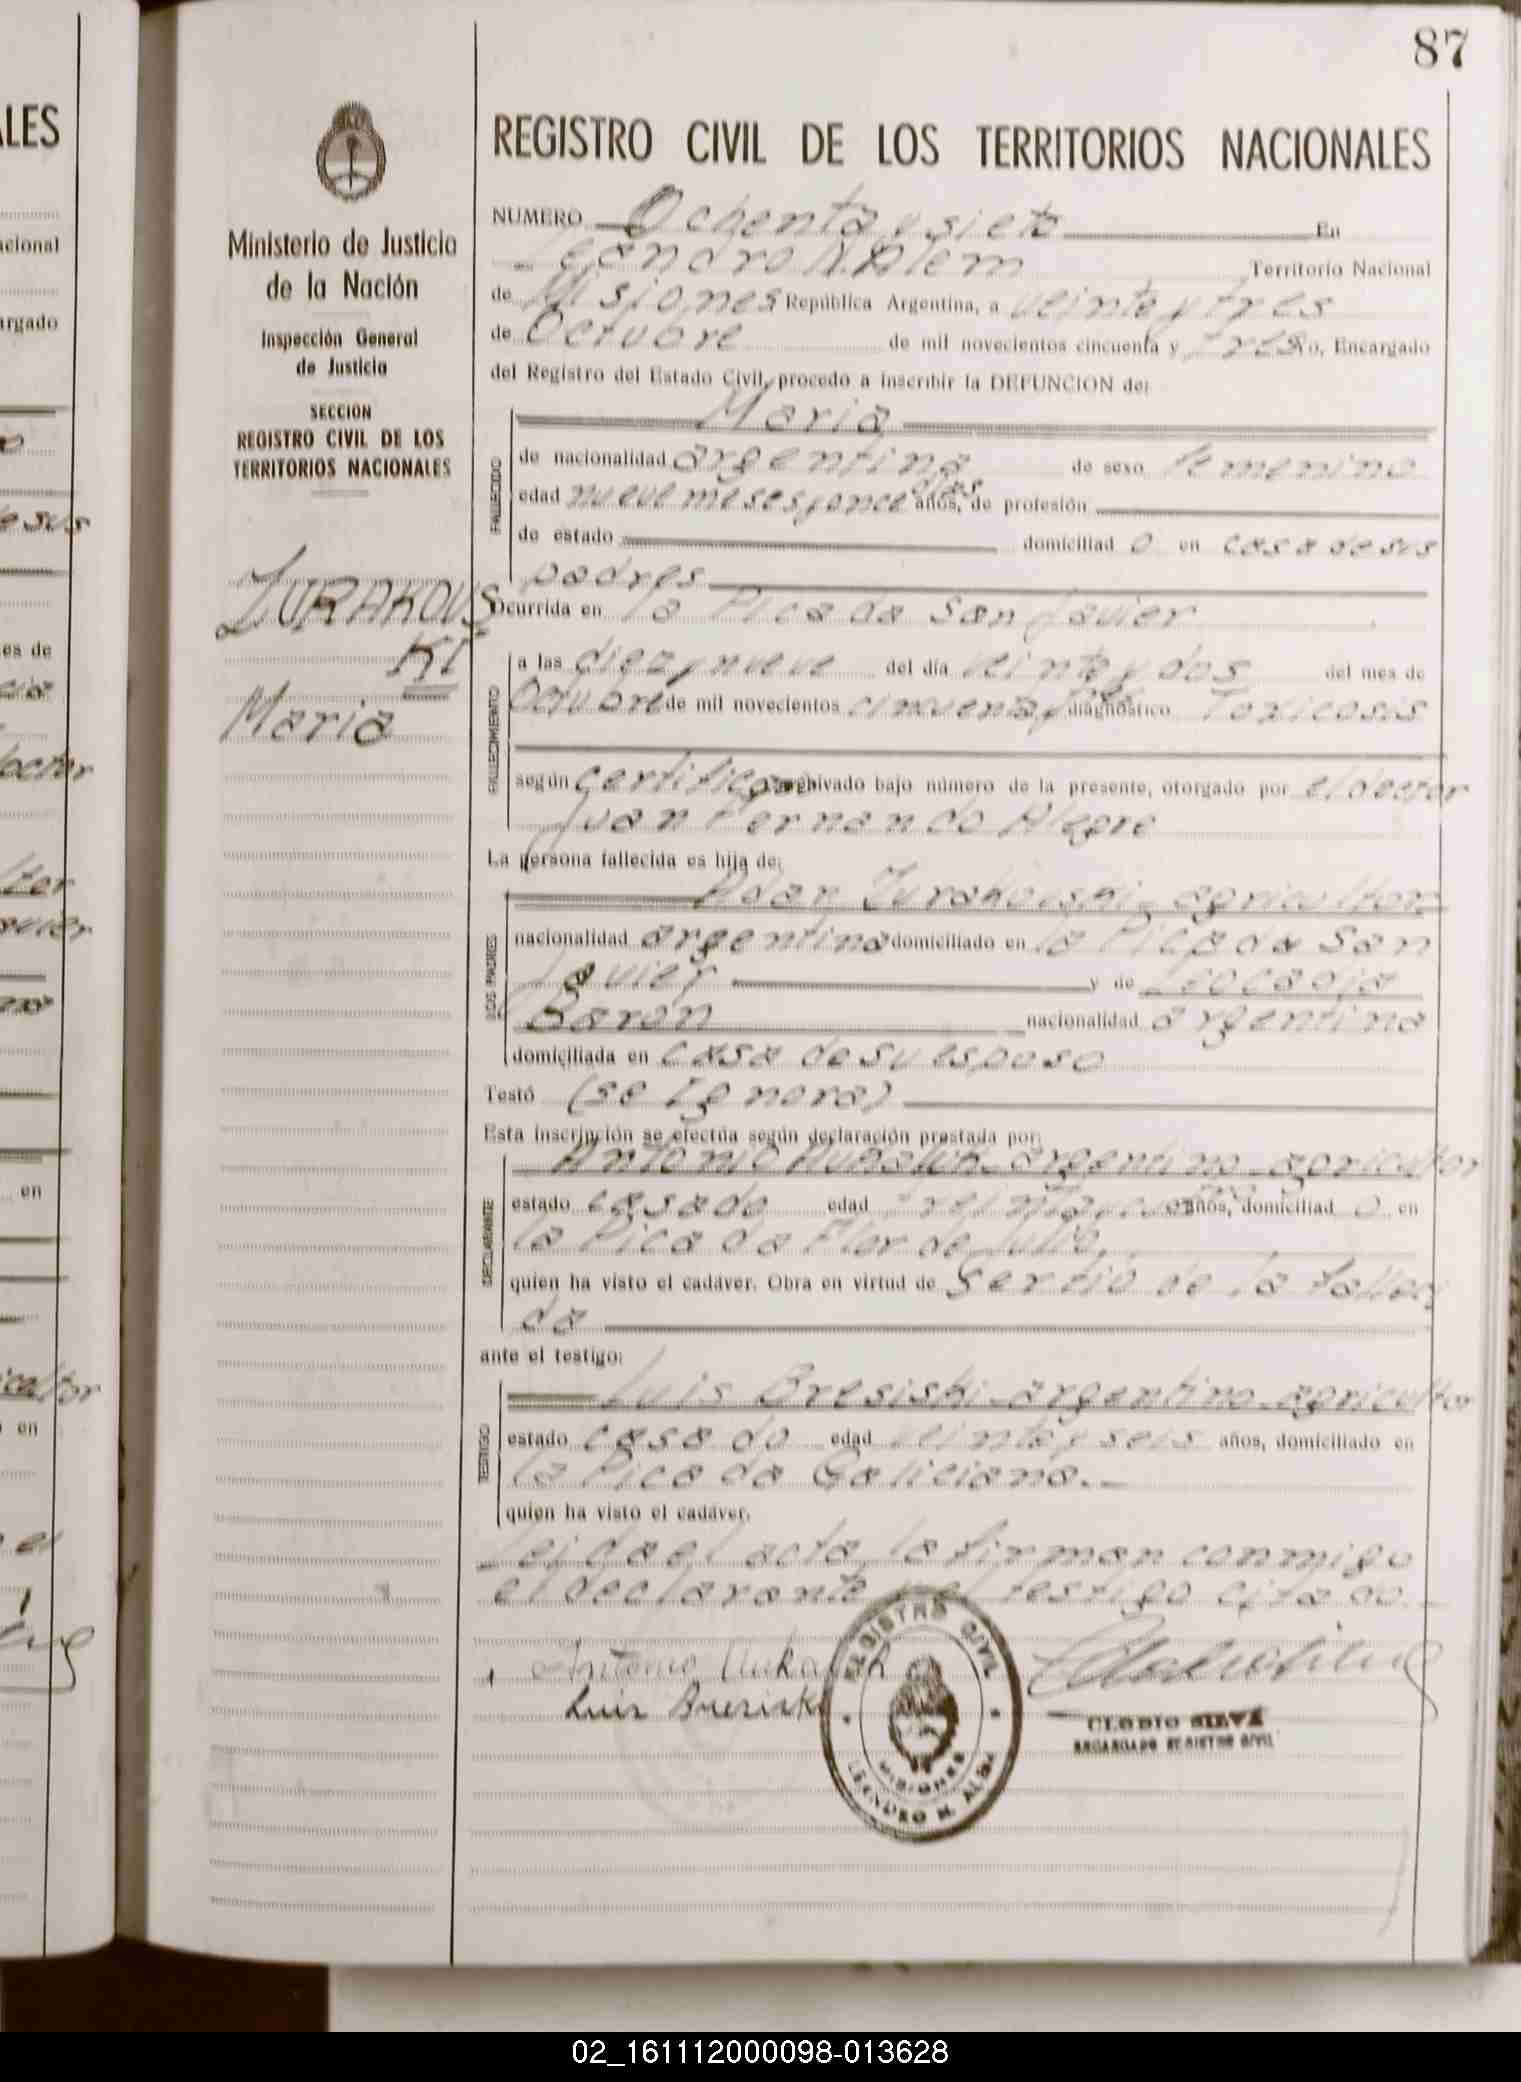 87
LES
REGISTRO CIVIL DE LOS TERRITORIOS NACIONALES
Ministerio de Justicia
de la Nación
Inspección General
de Justicia
SECCION
REGISTRO CIVIL DE LOS
TERRITORIOS NACIONALES
ZURAKOVS
KI
Maria
NUMERO Ochenta y siete En
Leandro N. Alem Territorio Nacional
de Misiones República Argentina, a veinte y tres
de Octubre de mil novecientos cincuenta y tres yo, Encargado
del Registro del Estado Civil, procedo a inscribir la DEFUNCION de:
Maria
FALLECIDO
de nacionalidad argentina de sexo femenino
edad nueve meses y once dias años, de profesión
de estado domiciliad o en casa de sus
padres
Ocurrida en la Picada San Javier
FALLECIMIENTO
a las diez y nueve del día veinte y dos del mes de
Octubre de mil novecientos cincuenta y tres diagnóstico Toxicosis
según certificado archivado bajo número de la presente, otorgado por el doctor
Juan Fernando Alegre
La persona fallecida es hija de:
DE LOS PADRES
Adan Zurakovski agricultor
nacionalidad argentina domiciliado en la Picada San
Javier y de Leocadia
Baron nacionalidad argentina
domiciliada en casa de su esposo
Testó (se Ignora)
Esta inscripción se efectúa según declaración prestada por:
DECLARANTE
Antonio argentino agricultor
estado casado edad años, domiciliad o en
la Picada Flor de
quien ha visto el cadáver. Obra en virtud de ser tio de la falleci
da
ante el testigo:
TESTIGO
Luis Bresiski argentino agricultor
estado casado edad veinte y seis años, domiciliado en
la Picada Galiciana.
quien ha visto el cadáver.
Leida el acta, la firman conmigo
el declarante y el testigo citado.
Antonio
Luis
REGISTRO CIVIL
MISIONES
LEANDRO N. ALEM
CLODIO SILVA
ENCARGADO REGISTRO CIVIL
02_161112000098-013628